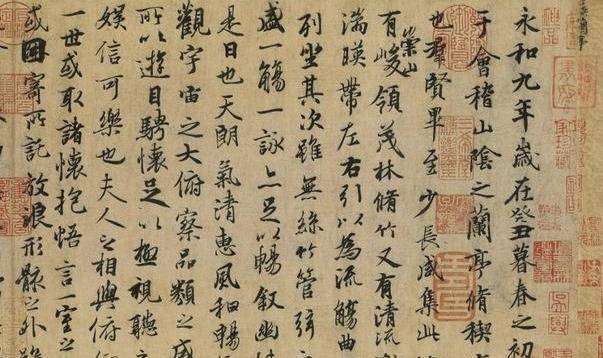 永和九年歲在癸丑暮春之初
于會稽山陰之蘭亭脩稧
也羣賢畢至少長咸集此
有崇山峻領茂林脩竹又有清流
湍暎帶左右引以為流觴曲
列坐其次雖無絲竹管弦
盛一觴一詠亦足以暢敘幽
是日也天朗氣清惠風和暢
觀宇宙之大俯察品類之盛
所以遊目騁懷足以極視聽之
娛信可樂也夫人之相與俯
一世或取諸懷抱悟言一室之
或因寄所託放浪形骸之外雖